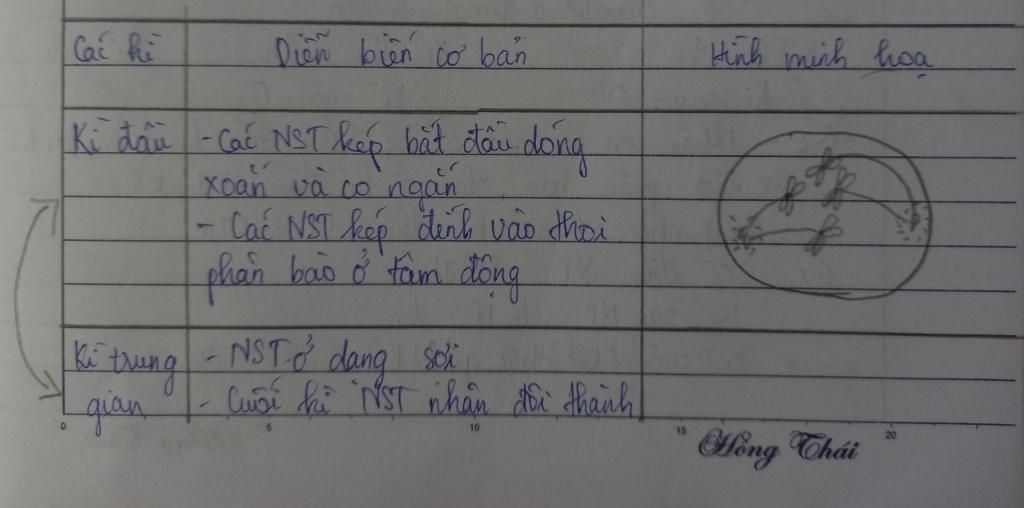 Các kì Diễn biến cơ bản Hình minh hoạ
Kì đầu - Các NST kép bắt đầu đóng
xoắn và co ngắn
- Các NST kép đính vào thoi
phân bào ở tâm động
Kì trung - NST ở dạng sợi
gian - Cuối kì NST nhân đôi thành
0 5 10 15 20
Hồng Thái